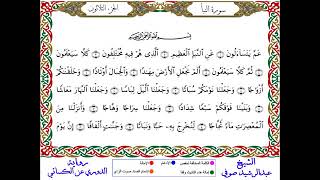 سورة النبأ
الجزء الثلاثون
بسم الله الرحمن الرحيم
عَمَّ يَتَسَاءَلُونَ عَنِ النَّبَإِ الْعَظِيمِ الَّذِي هُمْ فِيهِ مُخْتَلِفُونَ كَلَّا سَيَعْلَمُونَ
ثُمَّ كَلَّا سَيَعْلَمُونَ أَلَمْ نَجْعَلِ الْأَرْضَ مِهَٰدًا وَالْجِبَالَ أَوْتَادًا وَخَلَقْنَٰكُمْ
أَزْوَٰجًا وَجَعَلْنَا نَوْمَكُمْ سُبَاتًا وَجَعَلْنَا اللَّيْلَ لِبَاسًا وَجَعَلْنَا النَّهَارَ
مَعَاشًا وَبَنَيْنَا فَوْقَكُمْ سَبْعًا شِدَادًا وَجَعَلْنَا سِرَاجًا وَهَّاجًا وَأَنزَلْنَا مِنَ
الْمُعْصِرَٰتِ مَاءً ثَجَّاجًا لِّنُخْرِجَ بِهِ حَبًّا وَنَبَاتًا وَجَنَّٰتٍ أَلْفَافًا إِنَّ يَوْمَ
الشيخ
عبدالرشيد صوفي
رواية
الدوري عن الكسائي